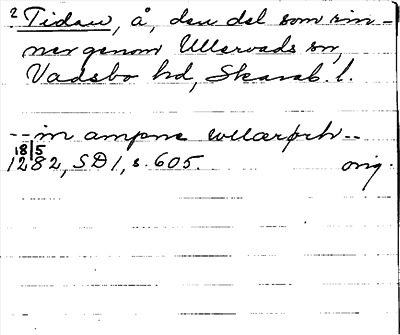 2 Tidan, å, den del som rin-
ner genom Ullervads sn,
Vadsbo hd, Skarab. l.
-- in ampne wllærøch --
18/5
1282, SD 1, s. 605. orig.